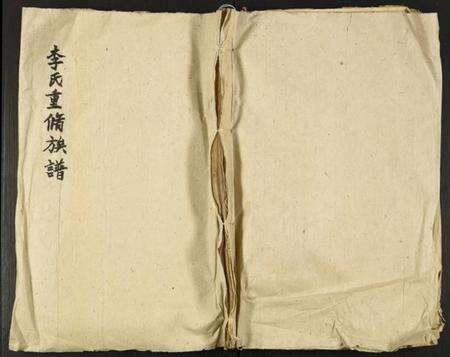 李氏重脩族譜